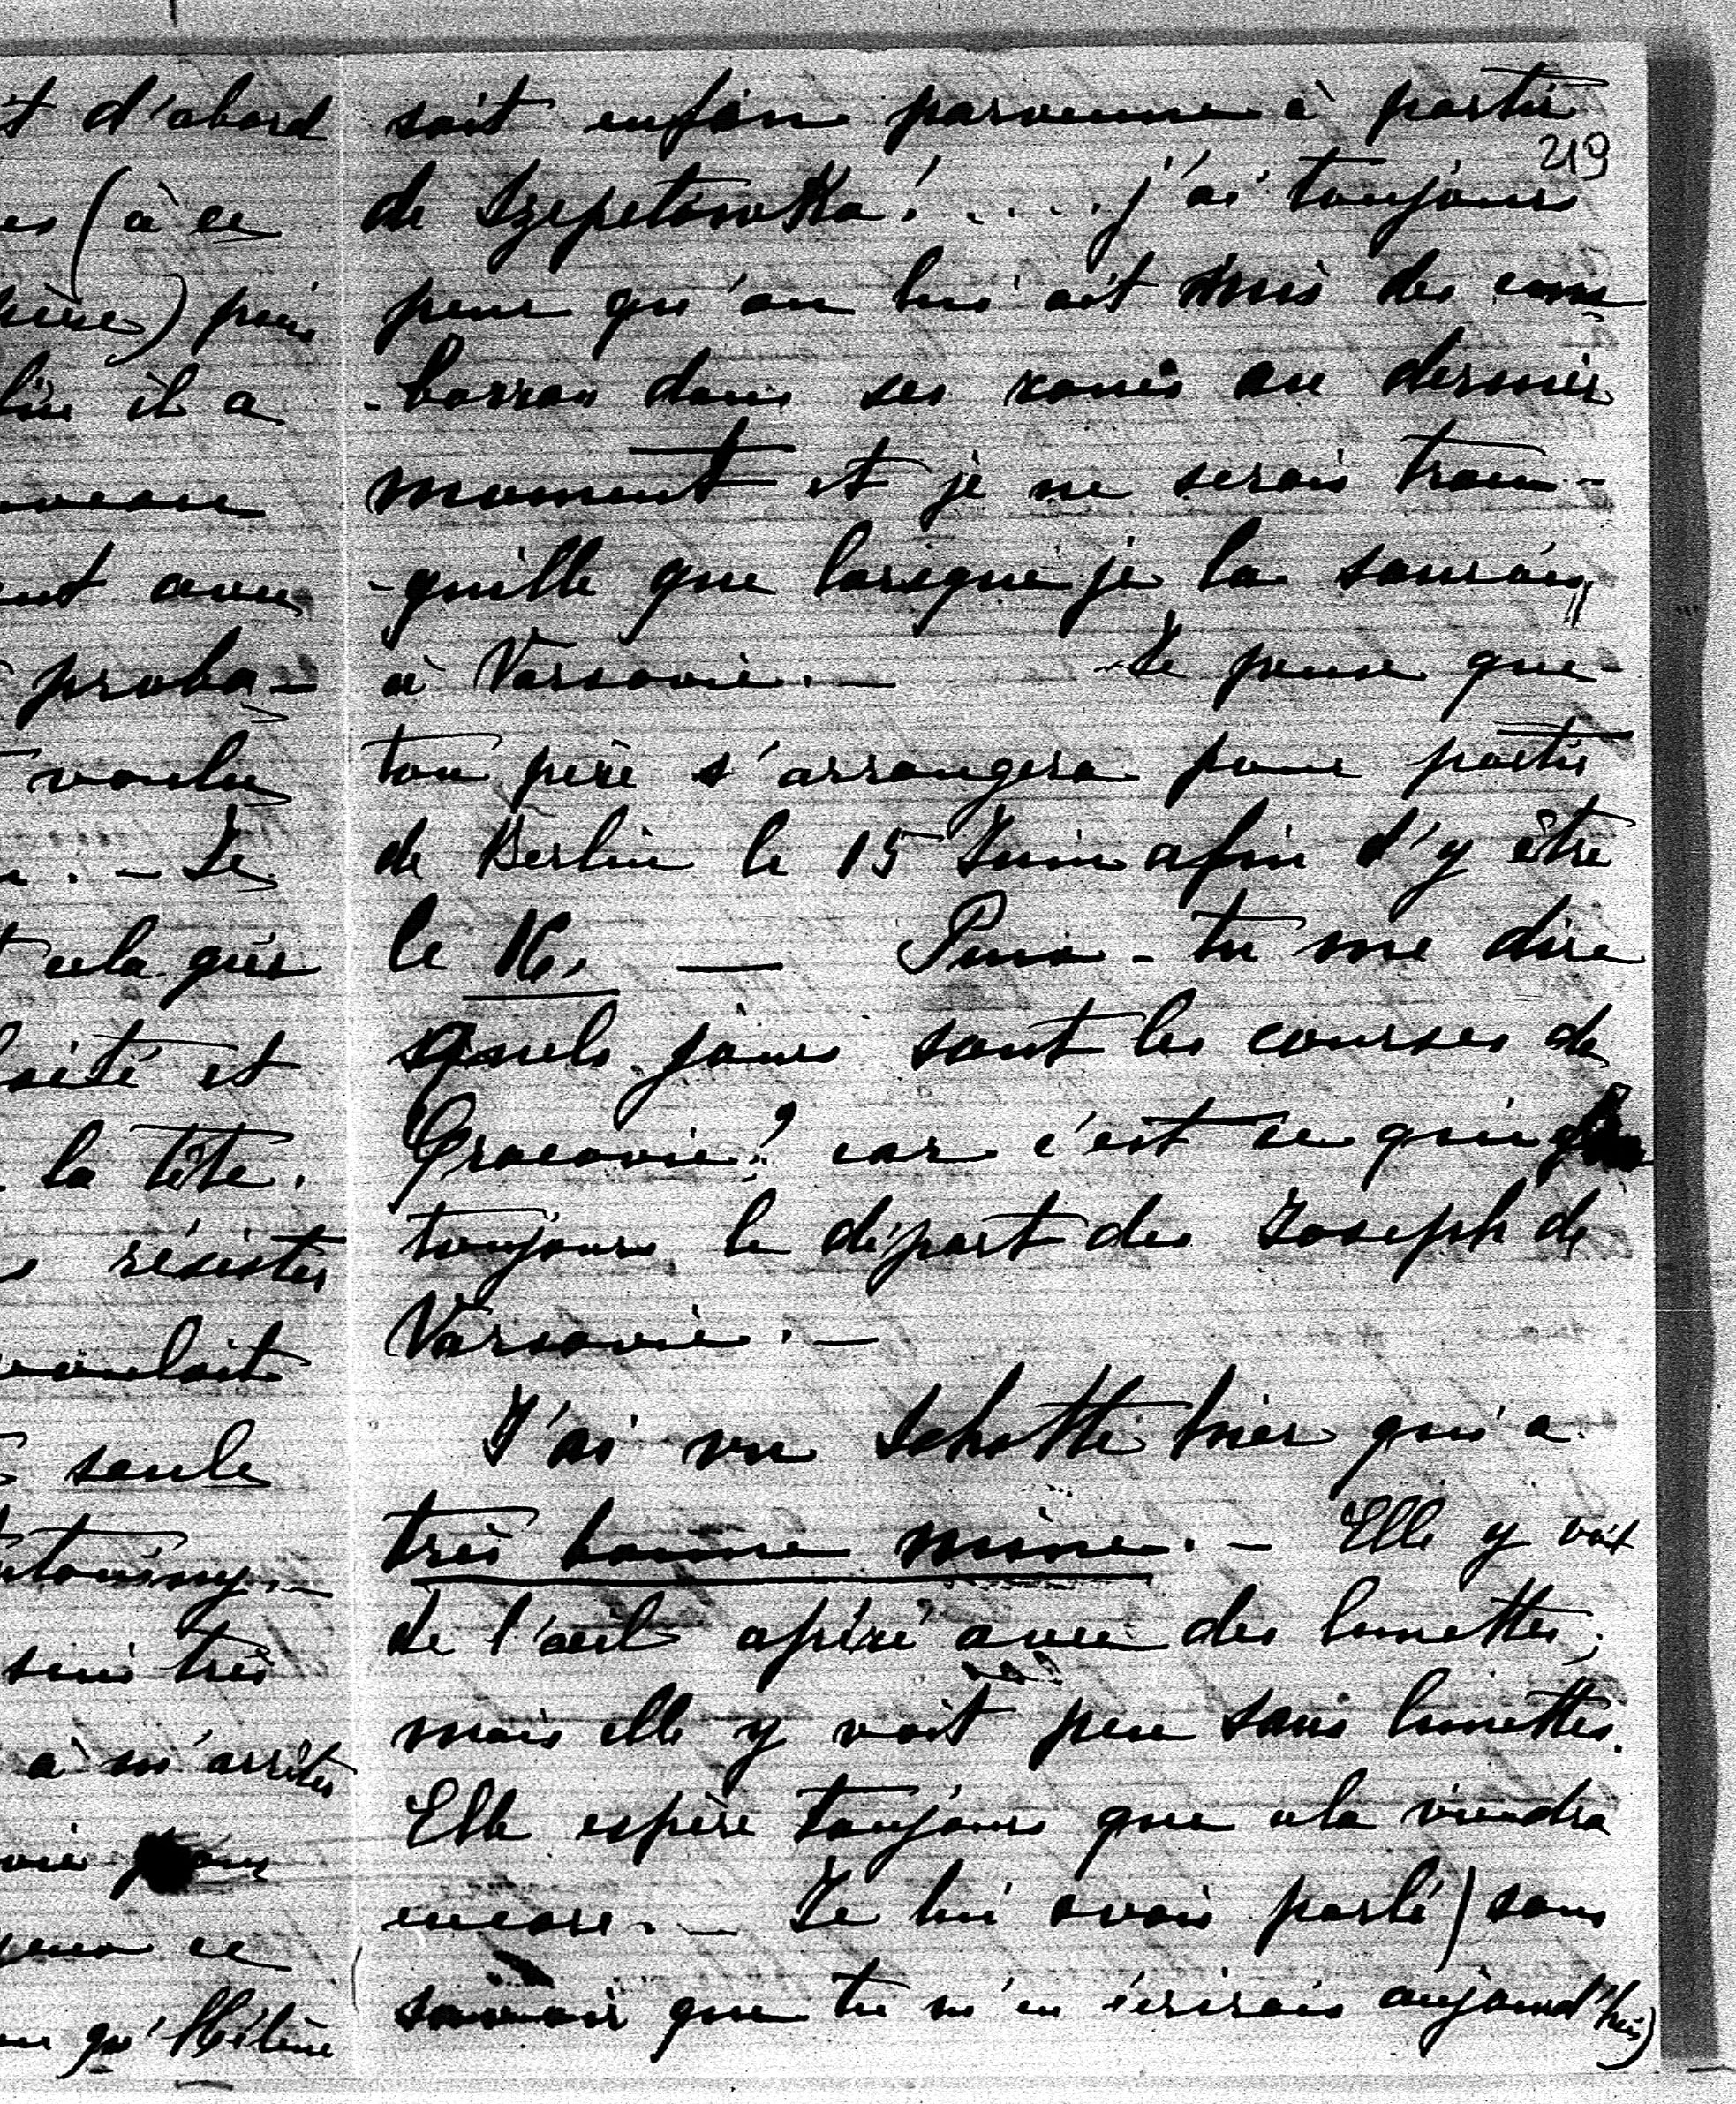 t d'abord
es (à ce
père) puis
lin il a
avec
proba-
voulu
. – Je
cela que
et
la tête.
résister
voulait
seule
suis très
à m'arrêter
ce
qu'Hélène
soit enfin parvenue à partir
219
de Szepetowka! .... j'ai toujours
peur qu'on lui ait mis des em
-barras dans ses roues au dernier
moment et je ne serais tran-
-quille que lorsque je la saurais
à Varsovie. — Je pense que
ton père s'arrangera pour partir
de Berlin le 15 Juin afin d'y être
le 16. — Puis-tu me dire
quels jours sont les courses de
Cracovie? car c'est ce qui
toujours le départ des Joseph de
Varsovie. —
J'ai vu Schotti hier qui a
très bonne mine. – Elle y voit
de l'œil opéré avec des lunettes,
mais elle y voit peu sans lunettes.
Elle espère toujours que cela viendra
encore. — Je lui avais parlé) sans
savoir que tu m'en écrirais aujourd'hui)